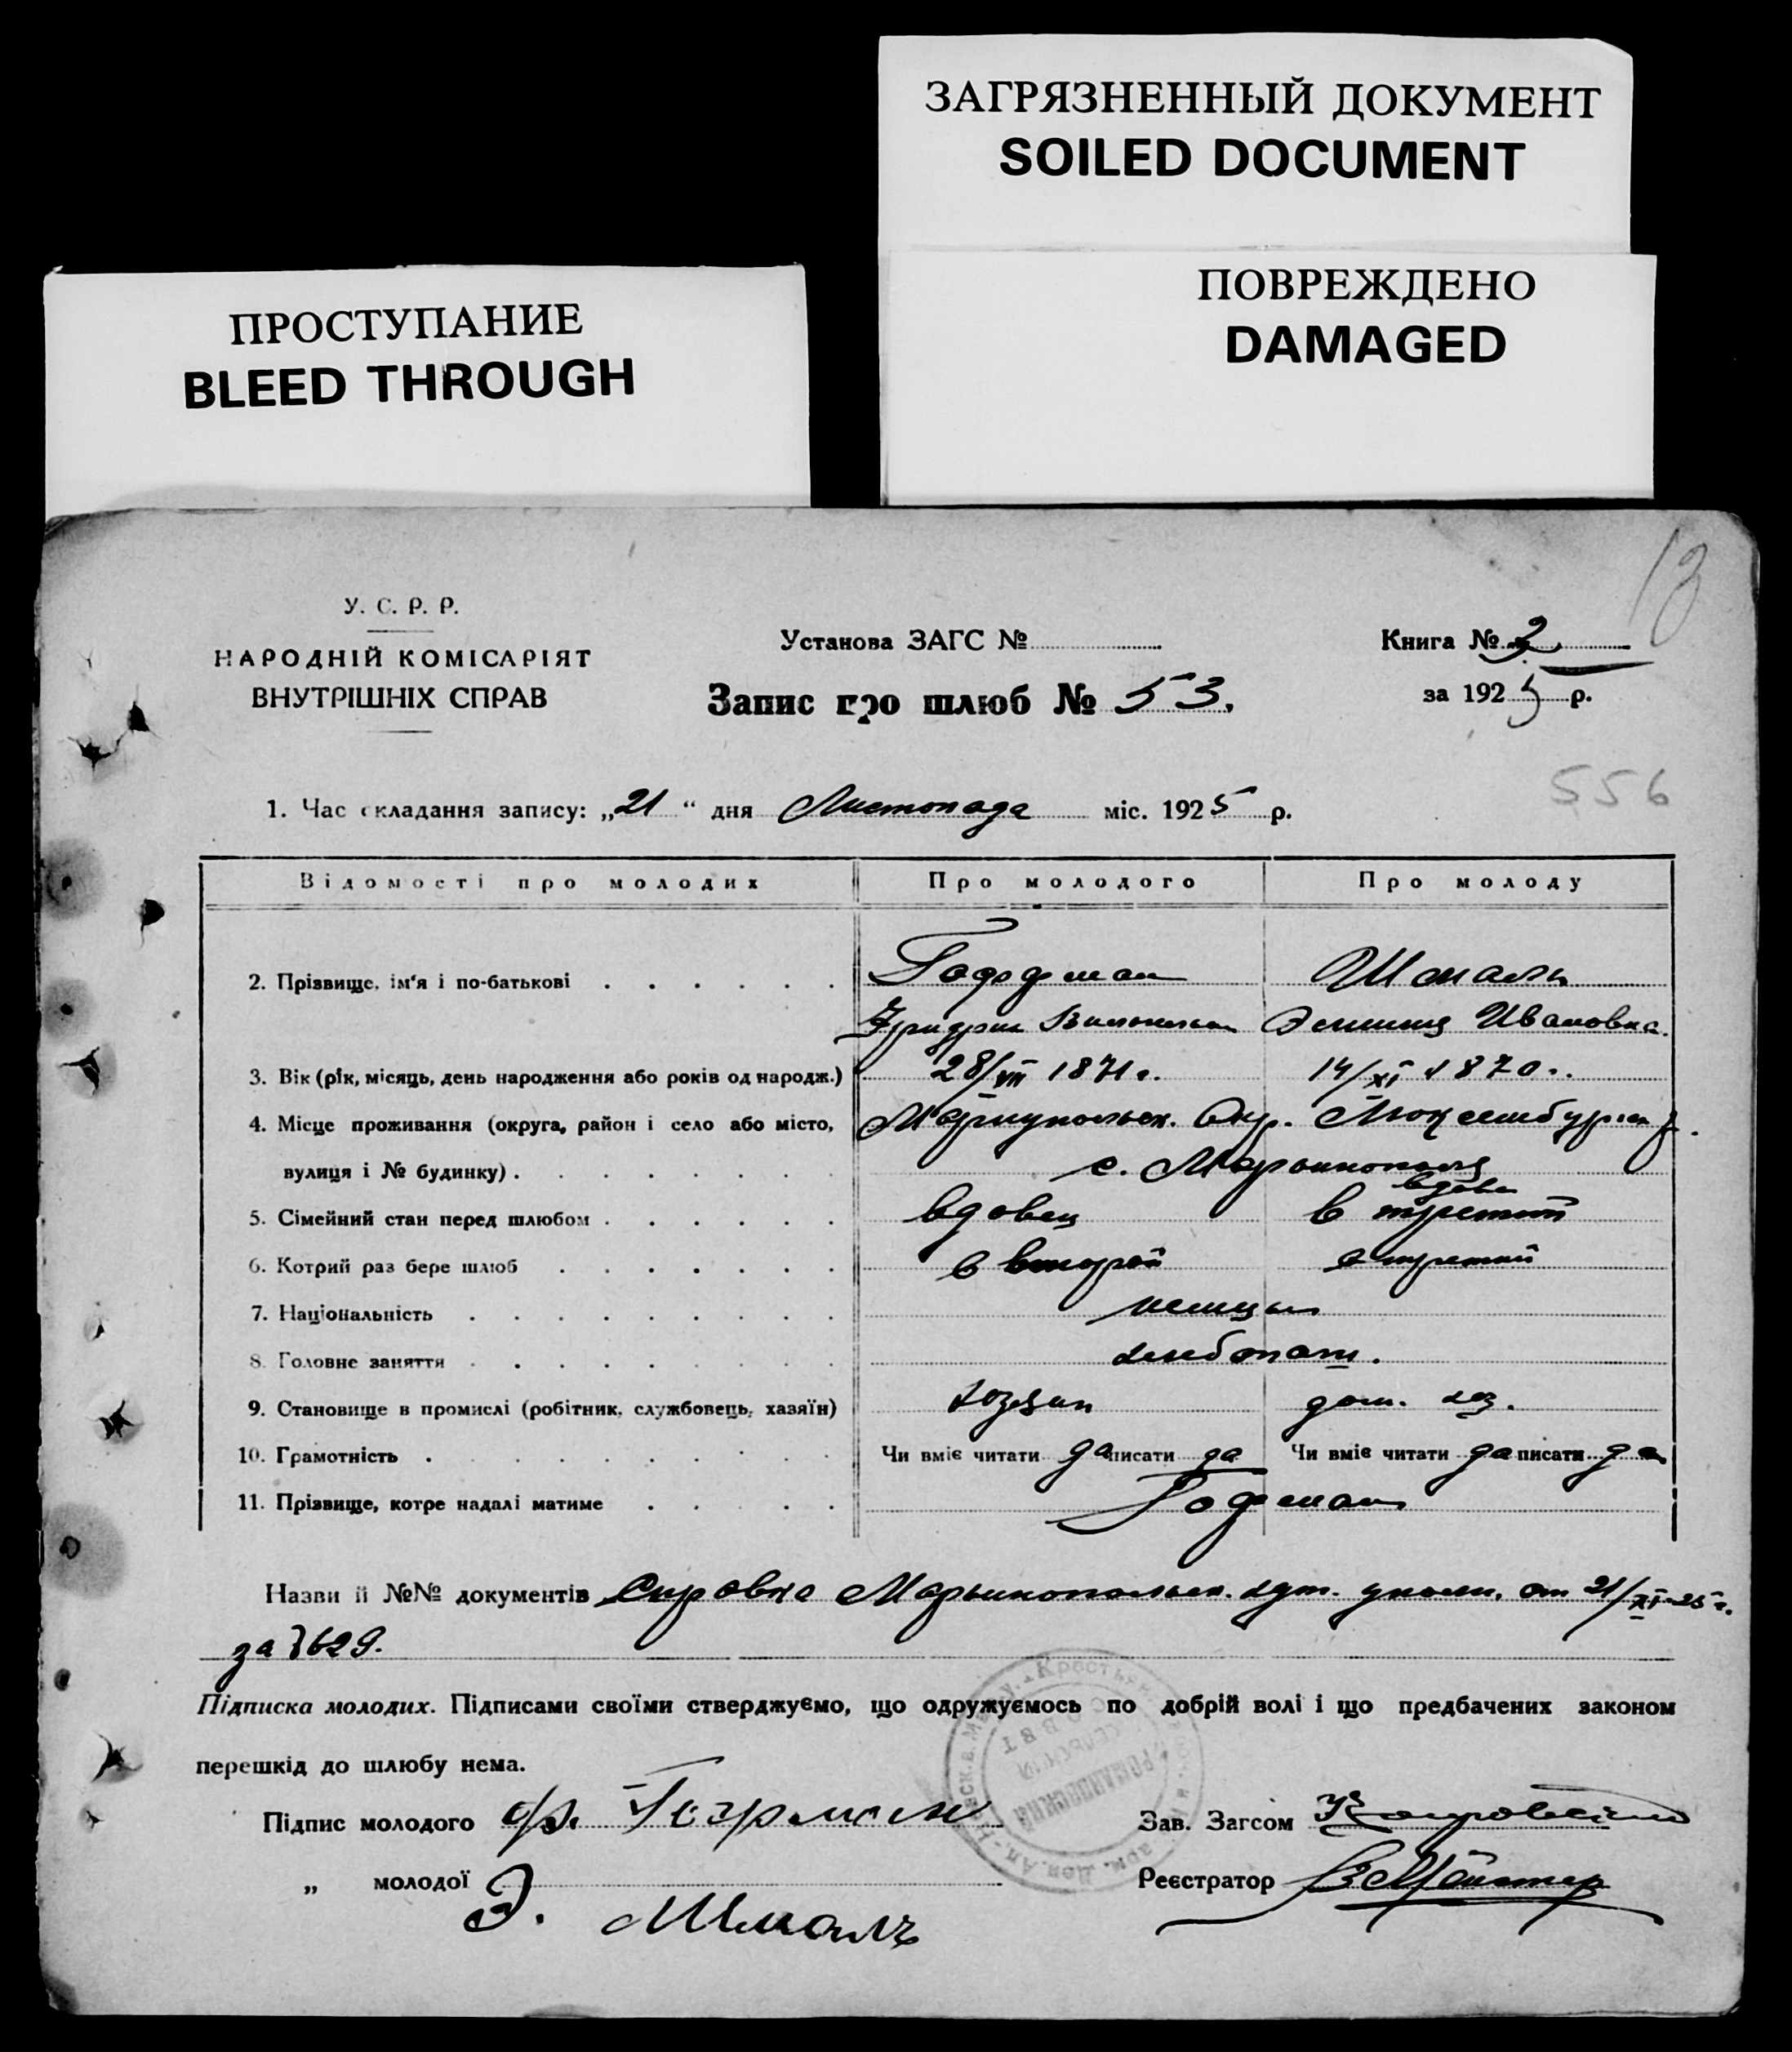 ЗАГРЯЗНЕННЫЙ ДОКУМЕНТ
SOILED DOCUMENT
ПОВРЕЖДЕНО
DAMAGED
ПРОСТУПАНИЕ
BLEED THROUGH
У. С. Р. Р.
НАРОДНІЙ КОМІСАРІЯТ
ВНУТРІШНІХ СПРАВ
Установа ЗАГС №
Запис про шлюб № 53.
Книга № 2
за 1925 р.
556
1. Час складання запису: „21“ дня Листопада міс. 1925 р.
Відомості про молодих Про молодого Про молоду
2. Прізвище, ім'я і по-батькові Гоффман Шмаль
Фридрих Вильгельм Эмилия Ивановна.
3. Вік (рік, місяць, день народження або років од народж.) 28/VII 1871 г. 14/XI 1870 г.
4. Місце проживання (округа, район і село або місто, Мариупольск. Окр. Люксембургск. р.
вулиця і № будинку) с. Марьинополь
вдова
5. Сімейний стан перед шлюбом вдовец в третий
6. Котрий раз бере шлюб в второй в третий
7. Національність немцы
8. Головне заняття хлебопаш.
9. Становище в промислі (робітник, службовець, хазяїн) хозяин дом. хоз.
10. Грамотність Чи вміє читати да писати да Чи вміє читати да писати да
11. Прізвище, котре надалі матиме Гофман
Назви й №№ документів Справка Марьинопольск. хут. уполн. от 21/XI-25 г.
за № 629.
Підписка молодих. Підписами своїми стверджуємо, що одружуємось по добрій волі і що предбачених законом
перешкід до шлюбу нема.
Підпис молодого Фр. Гофман Зав. Загсом
„ молодої Э. Шмаль Реєстратор